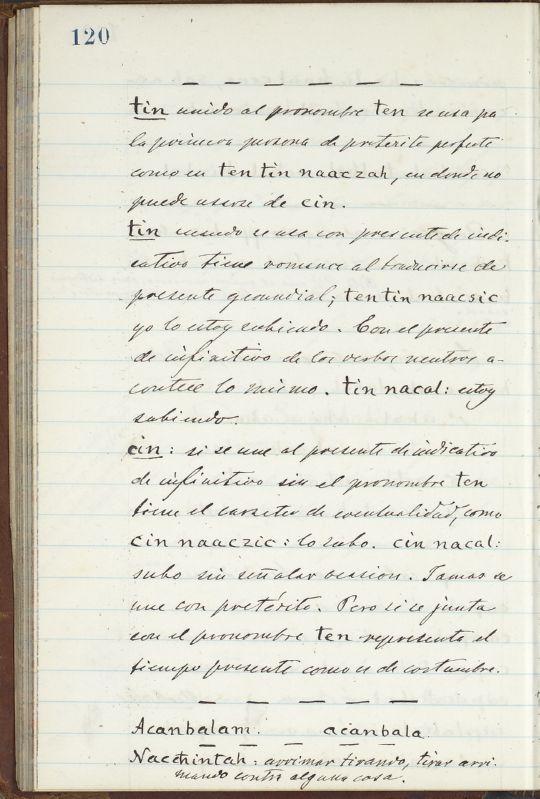 120
tin unido al pronombre ten se usa pa
la primera persona de preterito perfecto
como en ten tin naaczah, en donde no
puede usarse de cin.
tin cuando se usa con presente de indi-
cativo tiene romance al traducirse de
presente gerundial; ten tin naacsic
yo lo estoy subiendo. Con el presente
de infinitivo de los verbos neutros a-
contece lo mismo. tin nacal: estoy
subiendo.
cin: si se une al presente de indicativo
de infinitivo sin el pronombre ten
tiene el caracter de eventualidad, como
cin naaczic: lo subo. cin nacal:
subo sin señalar ocasion. Jamas se
une con pretérito. Pero si se junta
con el pronombre ten representa el
tiempo presente como es de costumbre.
Acanbalam. acanbala.
Nacchintah: arrimar tirando, tirar arri-
mando contra alguna cosa.